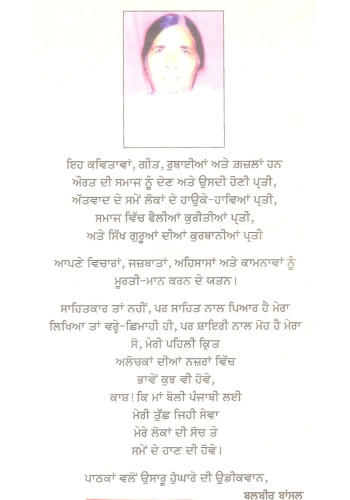 ਇਹ ਕਵਿਤਾਵਾਂ, ਗੀਤ, ਰੁਬਾਈਆਂ ਅਤੇ ਗ਼ਜ਼ਲਾਂ ਹਨ
ਔਰਤ ਦੀ ਸਮਾਜ ਨੂੰ ਦੇਣ ਅਤੇ ਉਸਦੀ ਹੋਣੀ ਪ੍ਰਤੀ,
ਅੱਤਵਾਦ ਦੇ ਸਮੇਂ ਲੋਕਾਂ ਦੇ ਹਾਉਕੇ-ਹਾਵਿਆਂ ਪ੍ਰਤੀ,
ਸਮਾਜ ਵਿੱਚ ਫੈਲੀਆਂ ਕੁਰੀਤੀਆਂ ਪ੍ਰਤੀ,
ਅਤੇ ਸਿੱਖ ਗੁਰੂਆਂ ਦੀਆਂ ਕੁਰਬਾਨੀਆਂ ਪ੍ਰਤੀ
ਆਪਣੇ ਵਿਚਾਰਾਂ, ਜਜ਼ਬਾਤਾਂ, ਅਹਿਸਾਸਾਂ ਅਤੇ ਕਾਮਨਾਵਾਂ ਨੂੰ
ਮੂਰਤੀ-ਮਾਨ ਕਰਨ ਦੇ ਯਤਨ।
ਸਾਹਿਤਕਾਰ ਤਾਂ ਨਹੀਂ, ਪਰ ਸਾਹਿਤ ਨਾਲ ਪਿਆਰ ਹੈ ਮੇਰਾ
ਲਿਖਿਆ ਤਾਂ ਵਰ੍ਹੇ-ਛਿਮਾਹੀ ਹੀ, ਪਰ ਸ਼ਾਇਰੀ ਨਾਲ ਮੋਹ ਹੈ ਮੇਰਾ
ਸੋ, ਮੇਰੀ ਪਹਿਲੀ ਕ੍ਰਿਤ
ਅਲੋਚਕਾਂ ਦੀਆਂ ਨਜ਼ਰਾਂ ਵਿੱਚ
ਭਾਵੇਂ ਕੁਝ ਵੀ ਹੋਵੇ,
ਕਾਸ਼! ਕਿ ਮਾਂ ਬੋਲੀ ਪੰਜਾਬੀ ਲਈ
ਮੇਰੀ ਤੁੱਛ ਜਿਹੀ ਸੇਵਾ
ਮੇਰੇ ਲੋਕਾਂ ਦੀ ਸੋਚ ਤੇ
ਸਮੇਂ ਦੇ ਹਾਣ ਦੀ ਹੋਵੇ।
ਪਾਠਕਾਂ ਵਲੋਂ ਉਸਾਰੂ ਹੁੰਘਾਰੇ ਦੀ ਉਡੀਕਵਾਨ,
ਬਲਬੀਰ ਬਾਂਸਲ